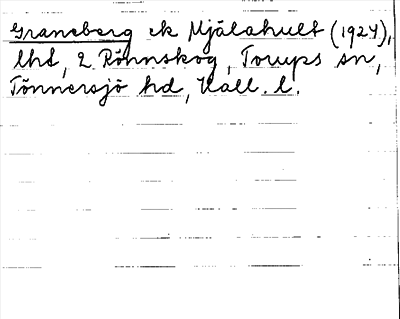 Graneberg ek Mjälahult (1924),
lht, 2 Rönnskog, Torups sn,
Tönnersjö hd, Hall. l.